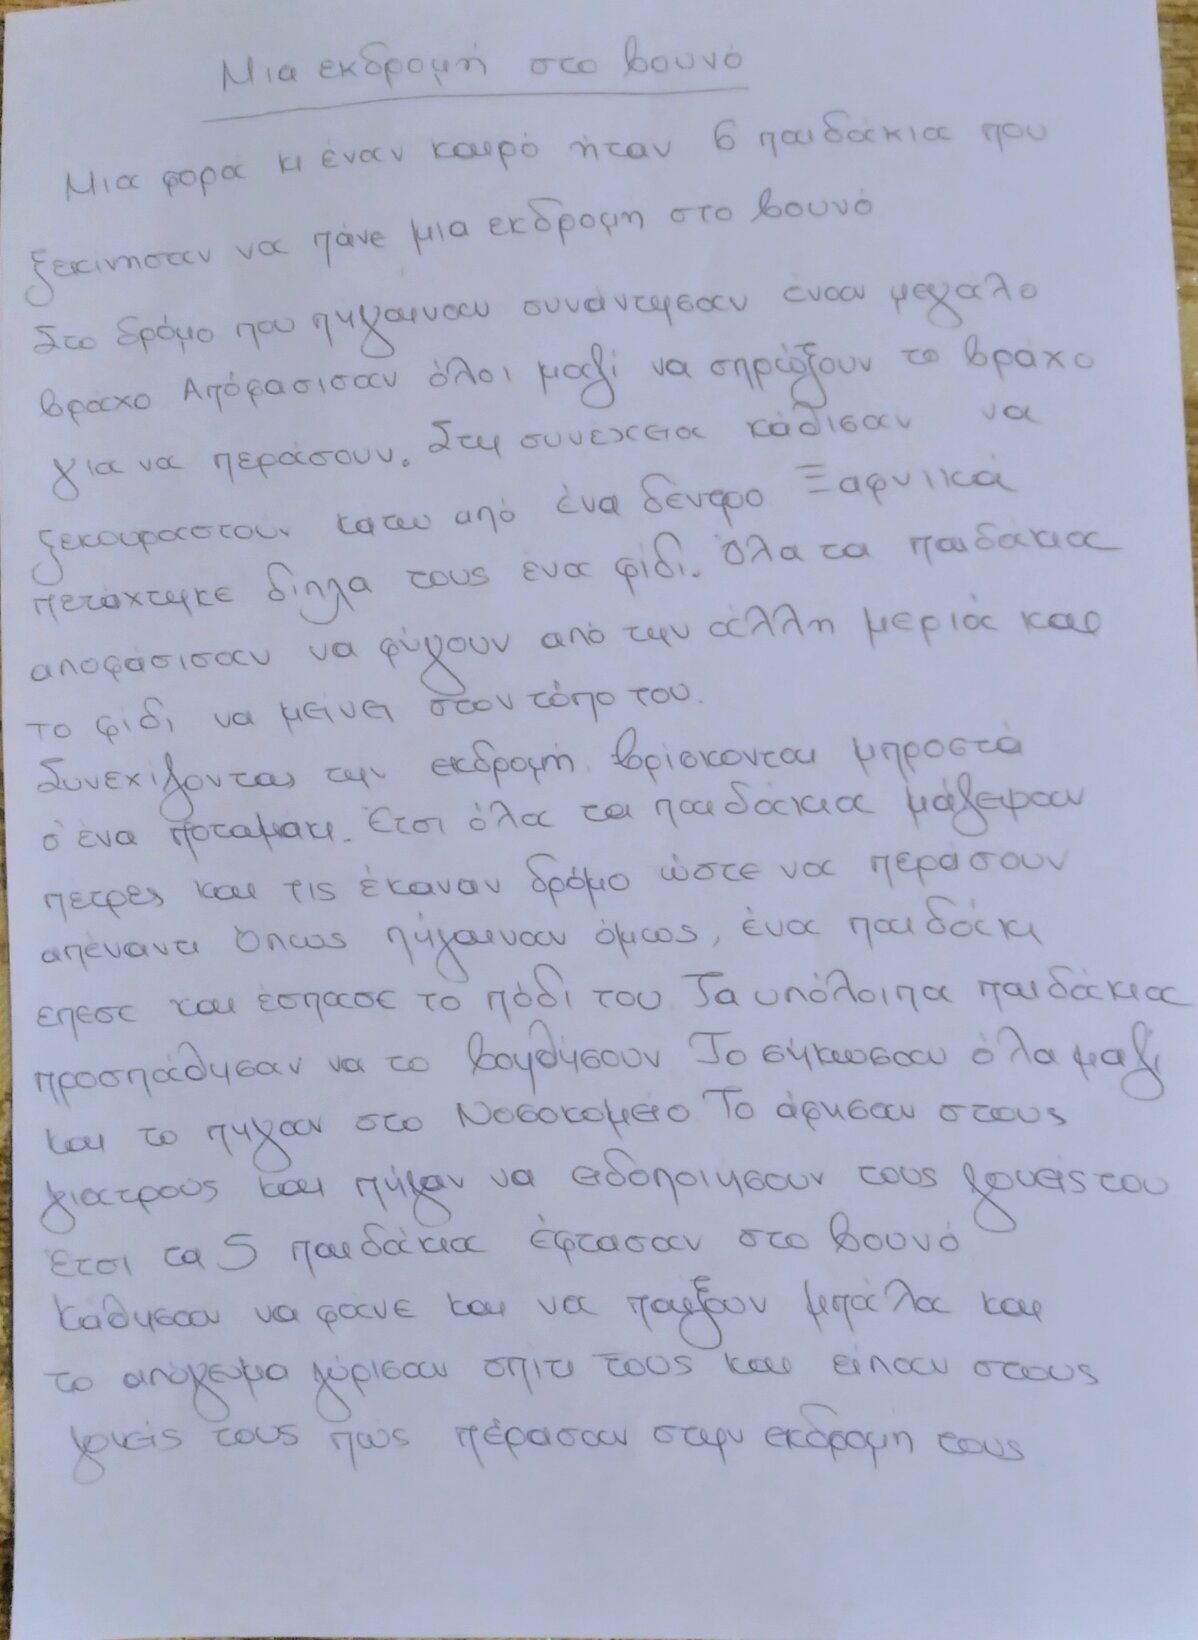 Μια εκδρομή στο βουνό
Μια φορά κι έναν καιρό ήταν 6 παιδάκια που
ξεκινησαν να πάνε μια εκδρομη στο βουνό
Στο δρόμο που πήγαιναν συνάντησαν έναν μεγαλο
βραχο Απόφασισαν όλοι μαζί να σπρώξουν το βράχο
για να περάσουν. Στη συνέχεια κάθισαν να
ξεκουραστουν κατω από ένα δέντρο Ξαφνικά
πετάχτηκε διπλα τους ένα φίδι. Όλα τα παιδάκια
αποφάσισαν να φύγουν από την άλλη μεριά και
το φιδι να μείνει στον τόπο του.
Συνεχίζοντας την εκδρομή βρίσκονται μπροστά
σ' ένα ποταμακι. Έτσι όλα τα παιδάκια μάζεψαν
πετρες και τις έκαναν δρόμο ώστε να περάσουν
απέναντι Όπως πήγαιναν όμως, ένα παιδάκι
επεσε και έσπασε το πόδι του Τα υπόλοιπα παιδάκια
προσπάθησαν να το βοηθήσουν Το σήκωσαν όλα μαζί
και το πήγαν στο Νοσοκομείο Το άφησαν στους
γιατρούς και πήγαν να ειδοποιησουν τους γονείς του
Έτσι τα 5 παιδάκια έφτασαν στο βουνό
Κάθησαν να φάνε και να παίξουν μπάλα και
το απόγευμα γύρισαν σπίτι τους και είπαν στους
γονείς τους πώς πέρασαν στην εκδρομή τους